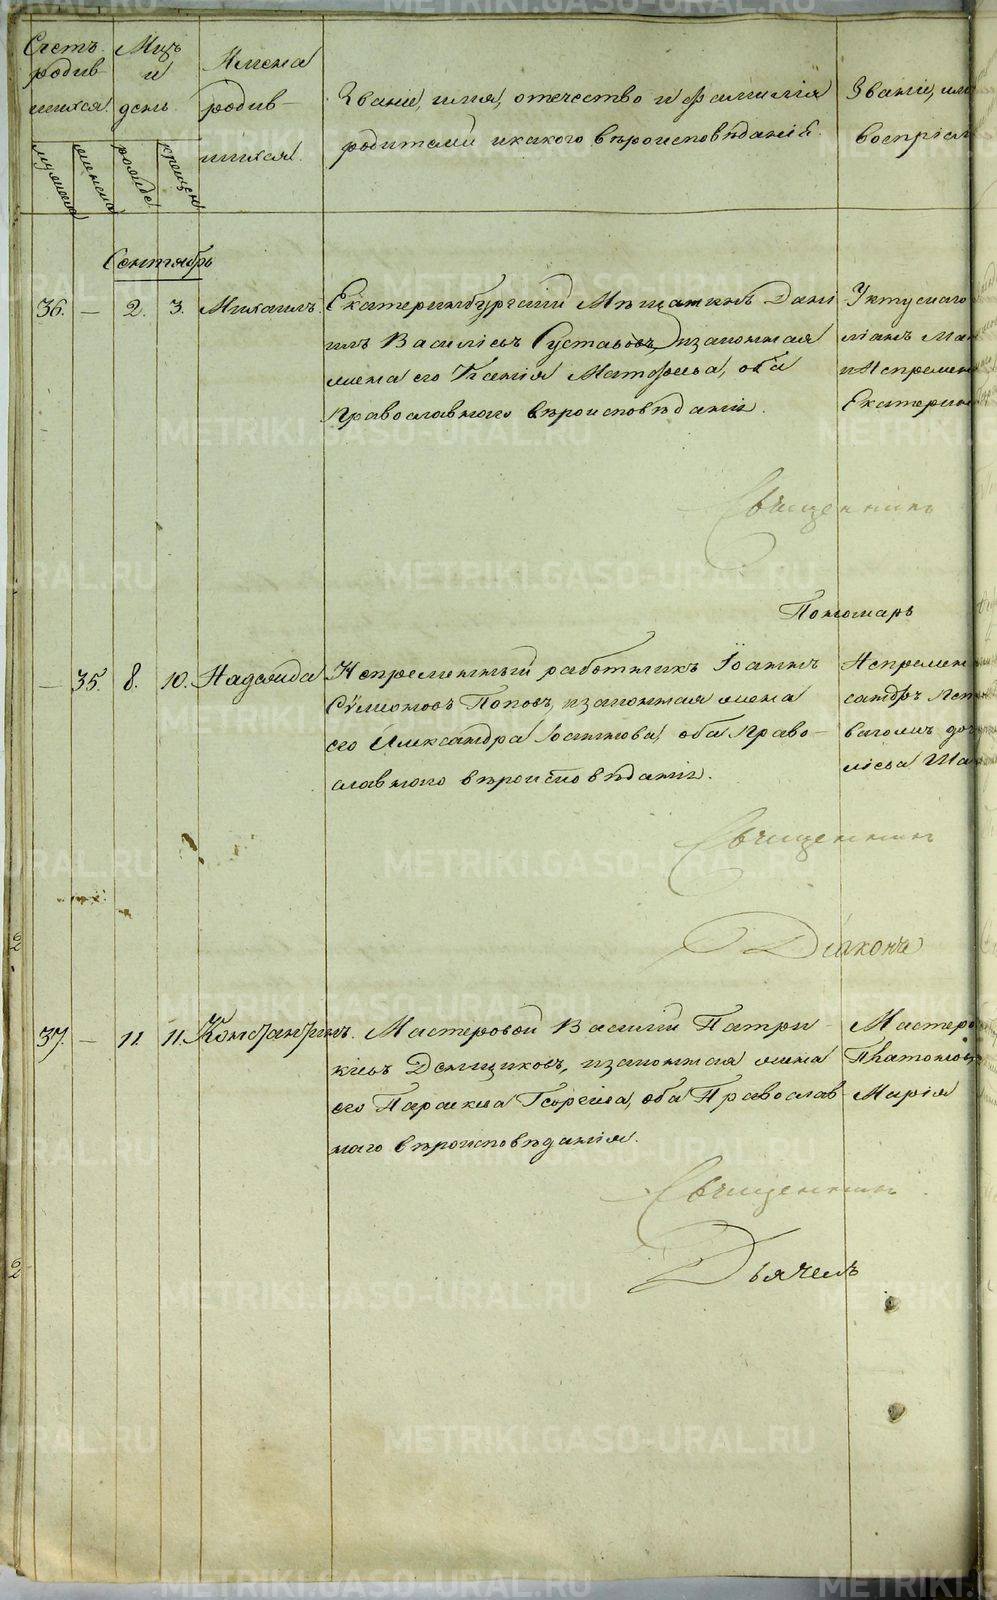 METRIKI.GASO-URAL.RU
Счетъ родив-шихся
мужеска
женска
Мцъ и день
рожде.
крещен
Имена родив-шихся.
Званіе, имя, отечество и фамилія
родителей и какого вѣроисповѣданія.
Званіе, имя
воспріем
Сентябрь
36. — 2. 3. Михаилъ.
Екатеринбургскій Мѣщанинъ Дані
илъ Васильевъ Густавовъ, и законная
жена его Ксенія Матѳеева, оба
Православнаго вѣроисповѣданія.
Уктускаго
Екатерин
Священникъ
Пономарь
— 35. 8. 10. Надежда
Непременный работникъ Іоаннъ
Сѵмеоновъ Поповъ, и законная жена
его Александра Іосифова, оба Право-
славнаго вѣроисповѣданія.
Непремен
Священникъ
Діаконъ
37. — 11. 11. Константинъ.
Мастеровой Василій Патри-
кіевъ Денщиковъ, и законная жена
его Параскева Георгіева, оба Православ-
наго вѣроисповѣданія.
Мастеро
Платоновъ
Марія
Священникъ
Дьячекъ